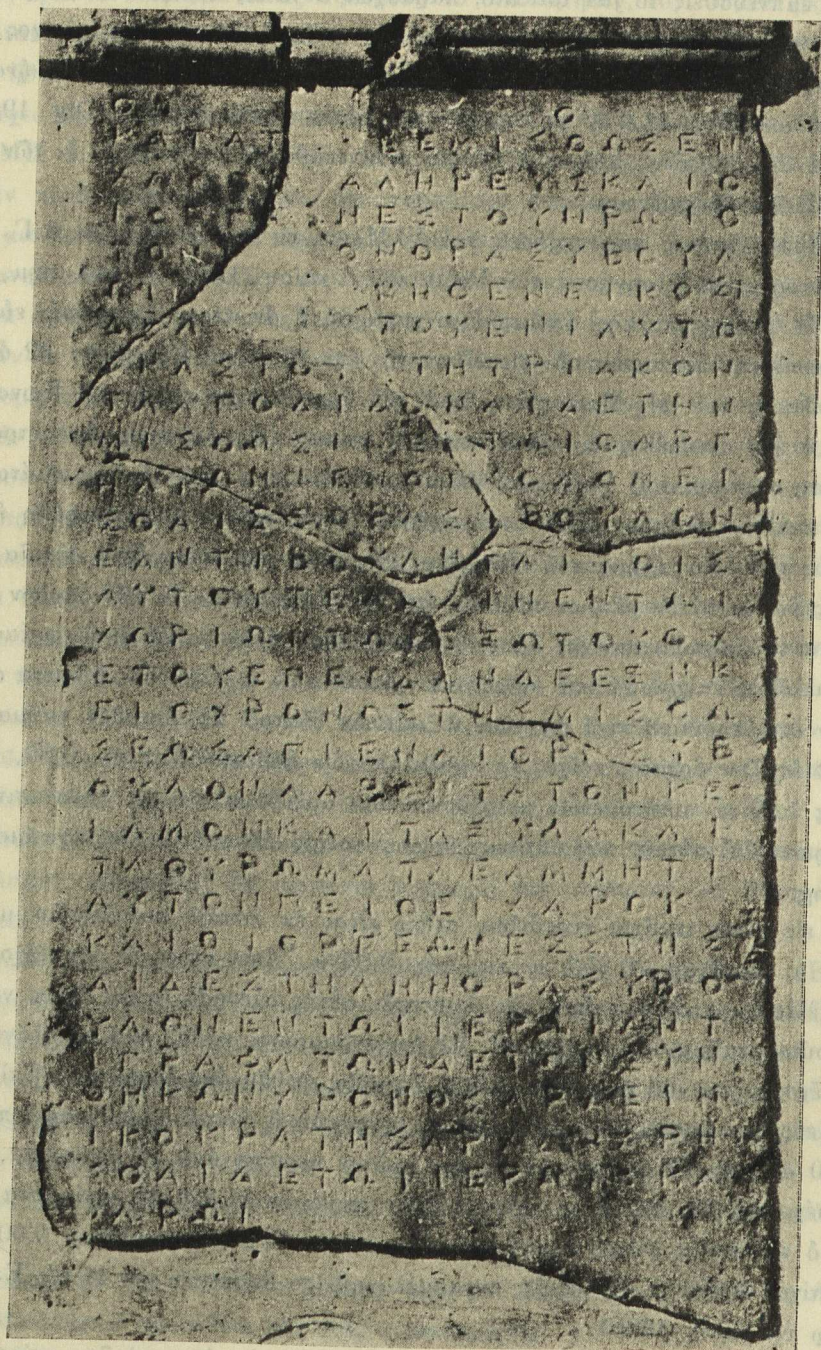 Θ Ο
ΚΑΤΑΤ ΕΕΜΙΣΘΩΣΕΝ
ΧΑΡΟ ΑΛΗΡΕΥΣΚΑΙΟ
ΙΟΡΓΕΩΝΕΣΤΟΥΗΡΩΙΟ
ΤΟΝ ΟΝΘΡΑΣΥΒΟΥΛ
ΩΙ ΚΗΘΕΝΕΙΚΟΣΙ
ΔΡΑ ΤΟΥΕΝΙΑΥΤΟ
ΕΚΑΣΤΟΥ ΤΗΤΡΙΑΚΟΝ
ΤΑΑΠΟΔΙΔΟΝΑΙΔΕΤΗΝ
ΜΙΣΘΩΣΙΝΕΝΤΩΙΘΑΡΓ
ΗΛΙΩΝΙΕΝΟΙΚΟΔΟΜΕΙ
ΣΘΑΙΔΕΘΡΑΣΥΒΟΥΛΟΝ
ΕΑΝΤΙΒΟΥΛΗΤΑΙΤΟΙΣ
ΑΥΤΟΥΤΕΛΕΣΙΝΕΝΤΩΙ
ΧΩΡΙΩΙΤΩΙΕΞΩΤΟΥΟΧ
ΕΤΟΥΕΠΕΙΔΑΝΔΕΕΞΗΚ
ΕΙΟΧΡΟΝΟΣΤΗΣΜΙΣΘΩ
ΣΕΩΣΑΠΙΕΝΑΙΘΡΑΣΥΒ
ΟΥΛΟΝΛΑΒΟΝΤΑΤΟΝΚΕ
ΡΑΜΟΝΚΑΙΤΑΞΥΛΑΚΑΙ
ΤΑΘΥΡΩΜΑΤΑΕΑΜΜΗΤΙ
ΑΥΤΟΝΠΕΙΘΕΙΧΑΡΟΚ
ΚΑΙΟΙΟΡΓΕΩΝΕΣΣΤΗΣ
ΑΙΔΕΣΤΗΛΗΝΘΡΑΣΥΒΟ
ΥΛΟΝΕΝΤΩΙΙΕΡΩΙΑΝΤ
ΙΓΡΑΦΑΤΩΝΔΕΤΩΝΣΥΝ
ΘΗΚΩΝΧΡΟΝΟΣΑΡΧΕΙΝ
ΙΚΟΚΡΑΤΗΣΑΡΧΩΝΧΡΗ
ΣΘΑΙΔΕΤΩΙΙΕΡΩΙ ΚΑ
ΧΑΡΩΙ